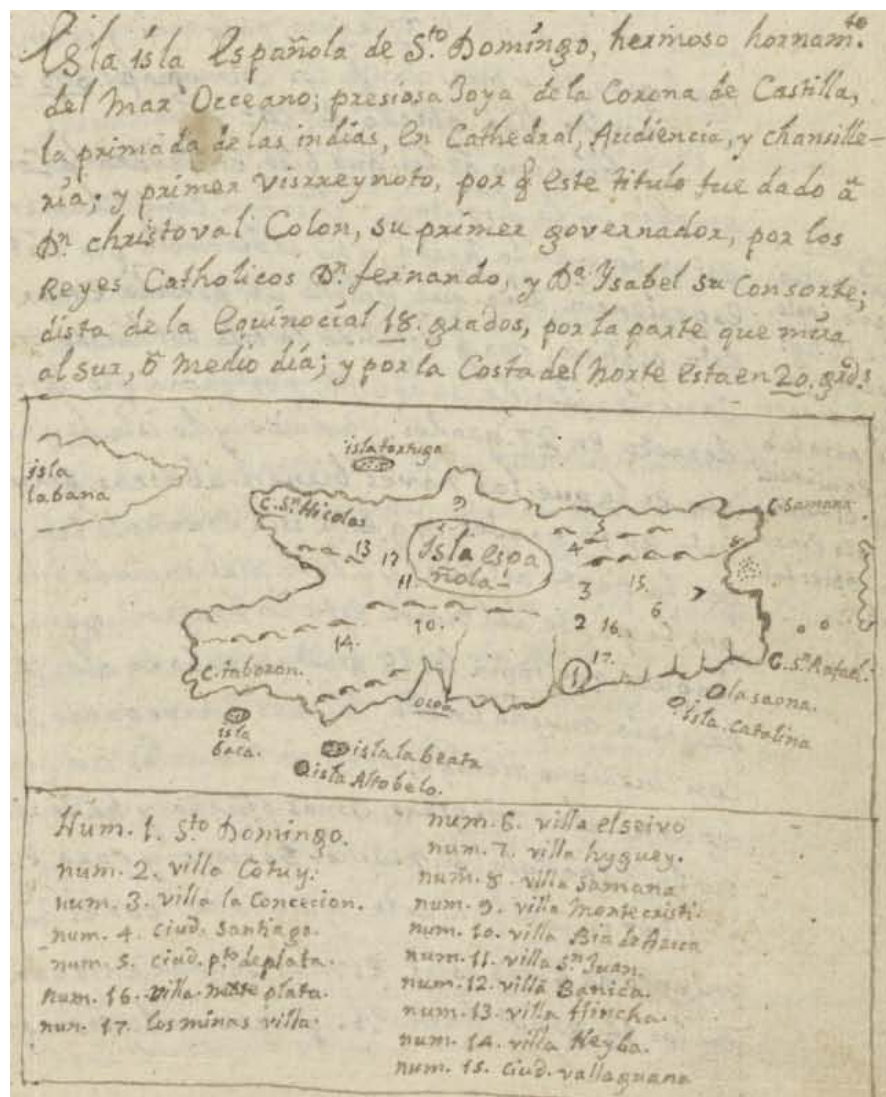 Esla isla Española de S.to Domingo, hermoso hornam.to
del Mar Occeano; presiosa Joya de la Corona de Castilla,
la primada de las indias, en Cathedral, Audiencia, y chansille-
ria; y primer visrreynoto, por q̃ este titulo fue dado â
Dn christoval Colon, su primer governador, por los
Reyes Catholicos Dn. fernando, y Da Ysabel su Consorte;
dista de la Equinocial 18. grados, por la parte que mira
al sur, ô medio dia; y por la Costa del Norte esta en 20. grds.
isla
labana
isla tortuga
C. Sn. Nicolas
C. Samana
9
5
4
8
13
12
11
Isla espa
ñola
3
15.
7
6
2
16
10.
14.
17.
1
C. tiburon.
C. Sn. Rafael.
ocoa
la saona.
isla. catalina
isla
baca.
isla la beata
isla Altobelo.
Num. 1. Sto Domingo.
num. 2. villa Cotuy.
num. 3. villa la Concecion.
num. 4. ciud. Santiago.
num. 5. ciud. pto deplata.
num. 16. villa monte plata.
num. 17. los minas villa.
num. 6. villa elseivo
num. 7. villa hyguey.
num. 8. villa Samana
num. 9. villa Montecristi.
num. 10. villa Bia de Azua
num. 11. villa Sn Juan.
num. 12. villa Banica.
num. 13. villa Hincha.
num. 14. villa Neyba.
num. 15. Ciud. vallaguana